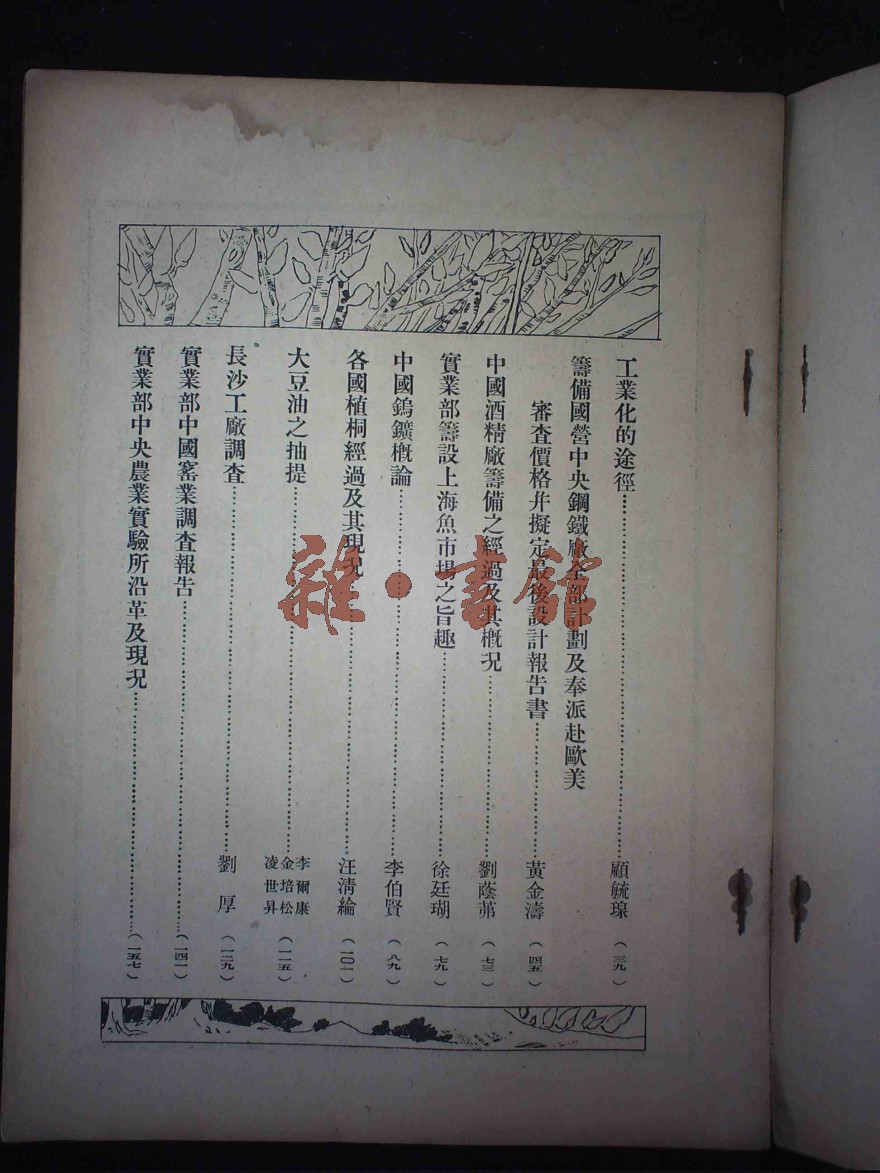 工業化的途徑 顧毓瑔 (三九)
籌備國營中央鋼鐵廠全部計劃及奉派赴歐美
審查價格幷擬定最後設計報告書 黃金濤 (四五)
中國酒精廠籌備之經過及其槪况 劉蔭茀 (七三)
實業部籌設上海魚市場之旨趣 徐廷瑚 (七九)
中國鎢鑛槪論 李伯賢 (八九)
各國植桐經過及其現况 汪淸綸 (一〇一)
大豆油之抽提 李爾康 金培松 凌世昇 (一一五)
長沙工廠調查 劉厚 (一二九)
實業部中國窰業調查報告 (一四一)
實業部中央農業實驗所沿革及現况 (一五七)
雜·書館